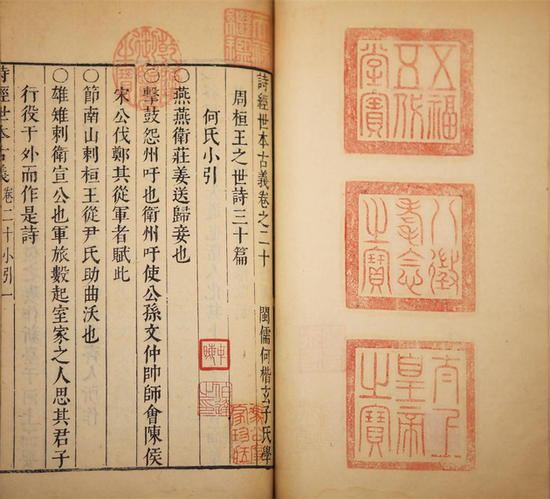 五福五代堂寶
八徵耄念之寶
太上皇帝之寶
詩經世本古義卷之二十
閩儒何楷玄子氏學
周桓王之世詩三十篇
何氏小引
○燕燕衛莊姜送歸妾也
○擊鼓怨州吁也衛州吁使公孫文仲帥師會陳侯
宋公伐鄭其從軍者賦此
○節南山刺桓王從尹氏助曲沃也
○雄雉刺衛宣公也軍旅數起室家之人思其君子
行役于外而作是詩
詩經世本古義 卷二十小引 一
乾隆御覽之寶
天祿繼鑑